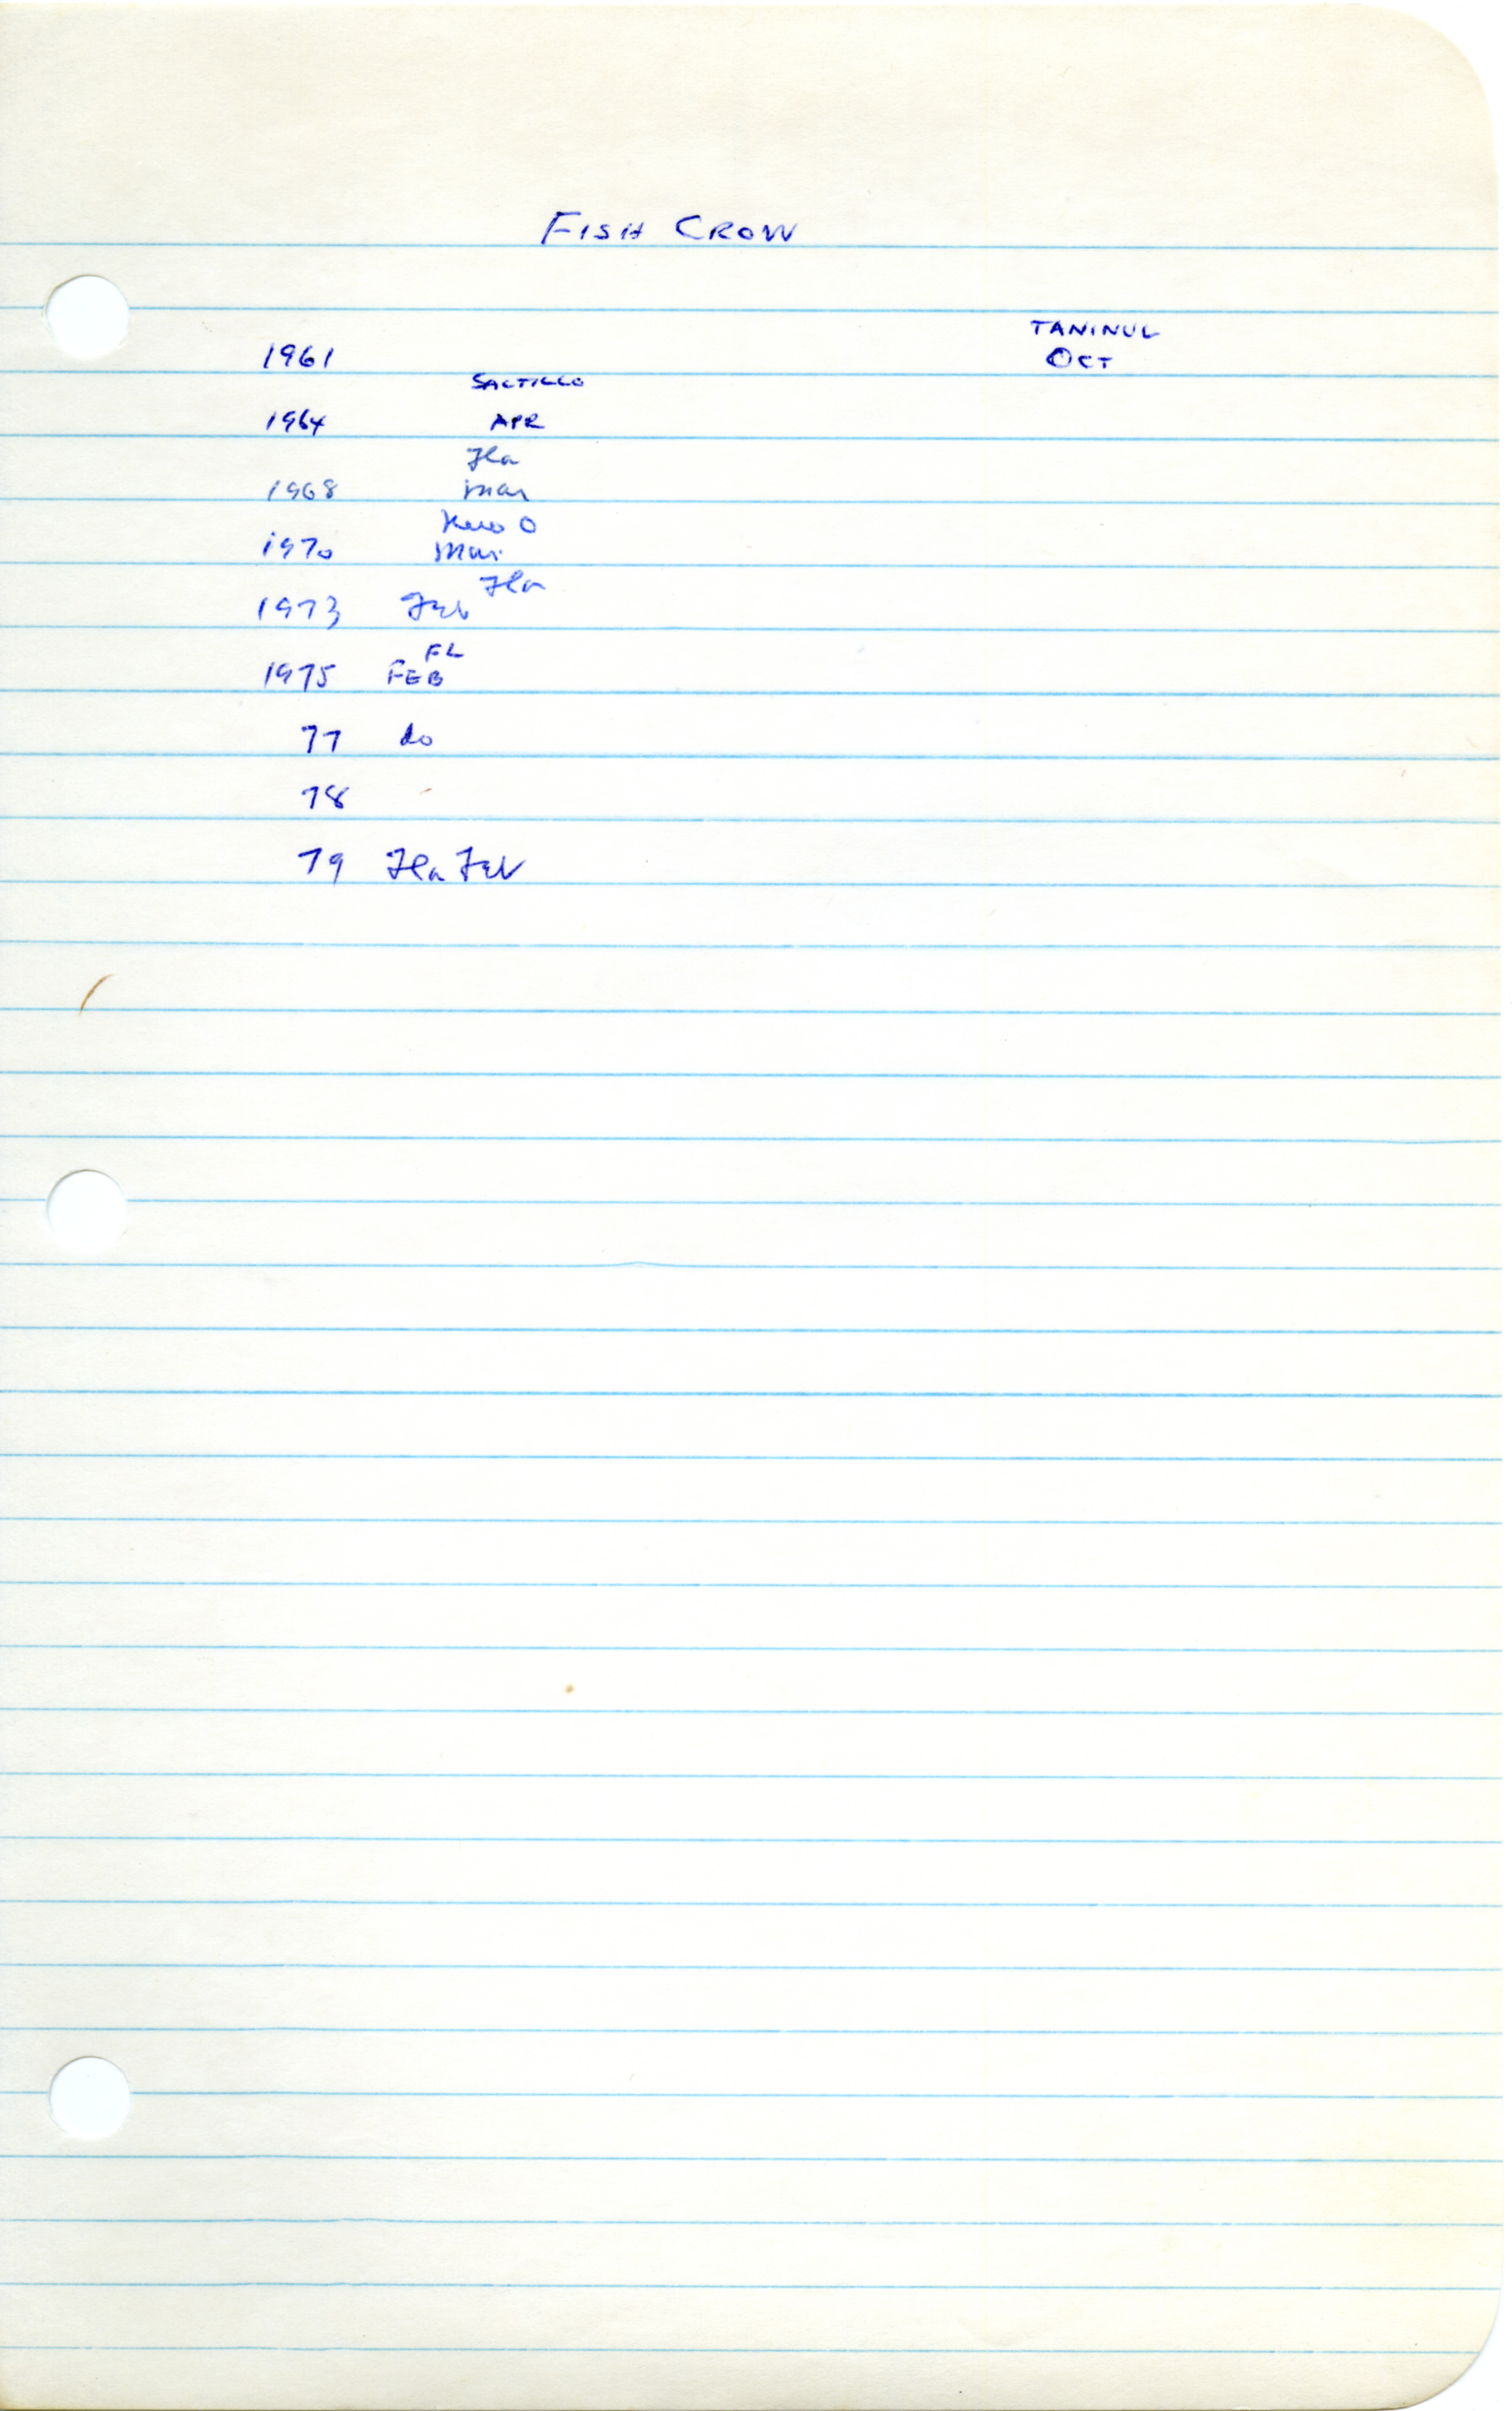 FISH CROW
TANINUL
1961 OCT
SALTILLO
1964 APR
Fla
1968 Mar
New O
1970 Mar
Fla
1973 Feb
FL
1975 FEB
77 do
78
79 Fla Feb